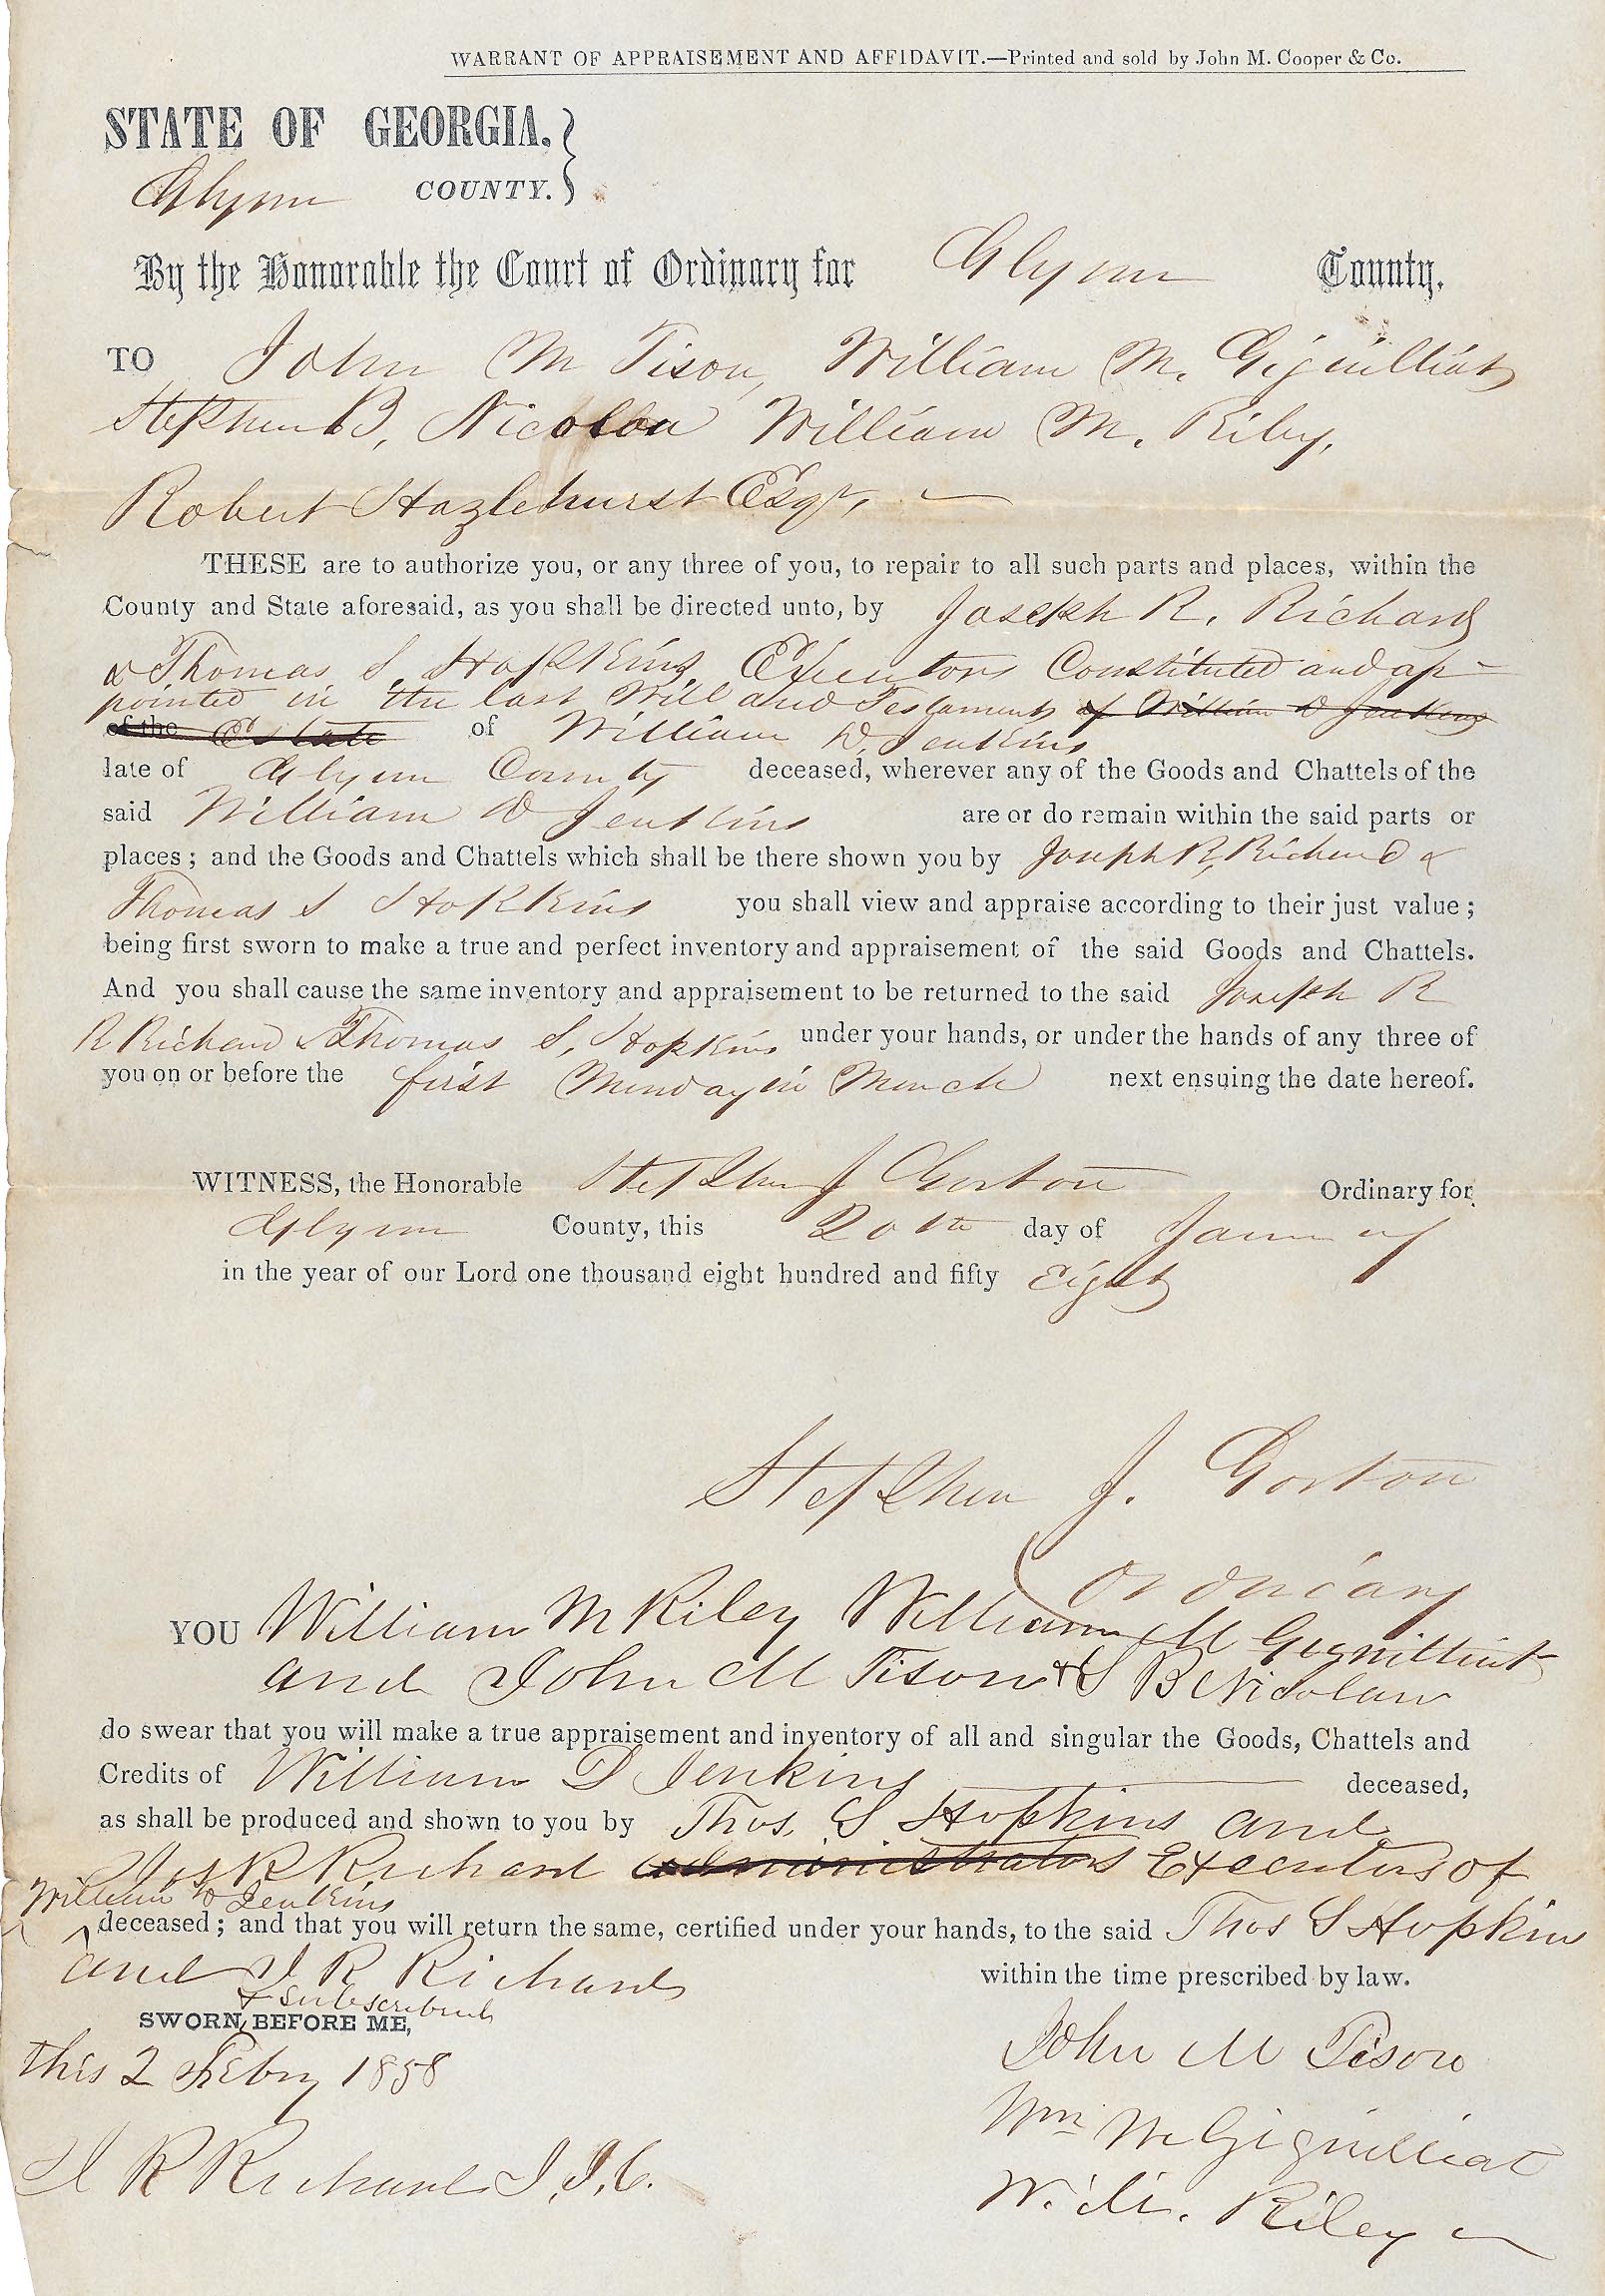 WARRANT OF APPRAISEMENT AND AFFIDAVIT.—Printed and sold by John M. Cooper & Co.
STATE OF GEORGIA.
Glynn COUNTY.
By the Honorable the Court of Ordinary for Glynn County.
TO John M Tison, William M. Gignilliat
Stephen B, Nicolau William M. Riley,
Robert Hazlehurst Esqr,
THESE are to authorize you, or any three of you, to repair to all such parts and places, within the
County and State aforesaid, as you shall be directed unto, by Joseph R. Richard
& Thomas S. Hopkins Executors Constituted and ap-
pointed in the last Will and Testament of William D Jenkins
of the Estate of William D. Jenkins
late of Glynn County deceased, wherever any of the Goods and Chattels of the
said William D Jenkins are or do remain within the said parts or
places; and the Goods and Chattels which shall be there shown you by Joseph R, Richard &
Thomas S Hopkins you shall view and appraise according to their just value;
being first sworn to make a true and perfect inventory and appraisement of the said Goods and Chattels.
And you shall cause the same inventory and appraisement to be returned to the said Joseph R
R Richard & Thomas S. Hopkins under your hands, or under the hands of any three of
you on or before the first Monday in March next ensuing the date hereof.
WITNESS, the Honorable Stephen J Gorton Ordinary for
Glynn County, this 20th day of January
in the year of our Lord one thousand eight hundred and fifty Eight
Stephen J. Gorton
Ordinary
YOU William M Riley William M Gignilliat
and John M Tison & S B Nicolau
do swear that you will make a true appraisement and inventory of all and singular the Goods, Chattels and
Credits of William D Jenkins deceased,
as shall be produced and shown to you by Thos. S Hopkins and
Jos R Richard administrators Executors of
William D Jenkins
deceased; and that you will return the same, certified under your hands, to the said Thos S Hopkins
and J R Richard within the time prescribed by law.
& subscribed
SWORN BEFORE ME,
this 2 Feby 1858
J R Richard J.I.C.
John M Tison
Wm M Gignilliat
W. M. Riley